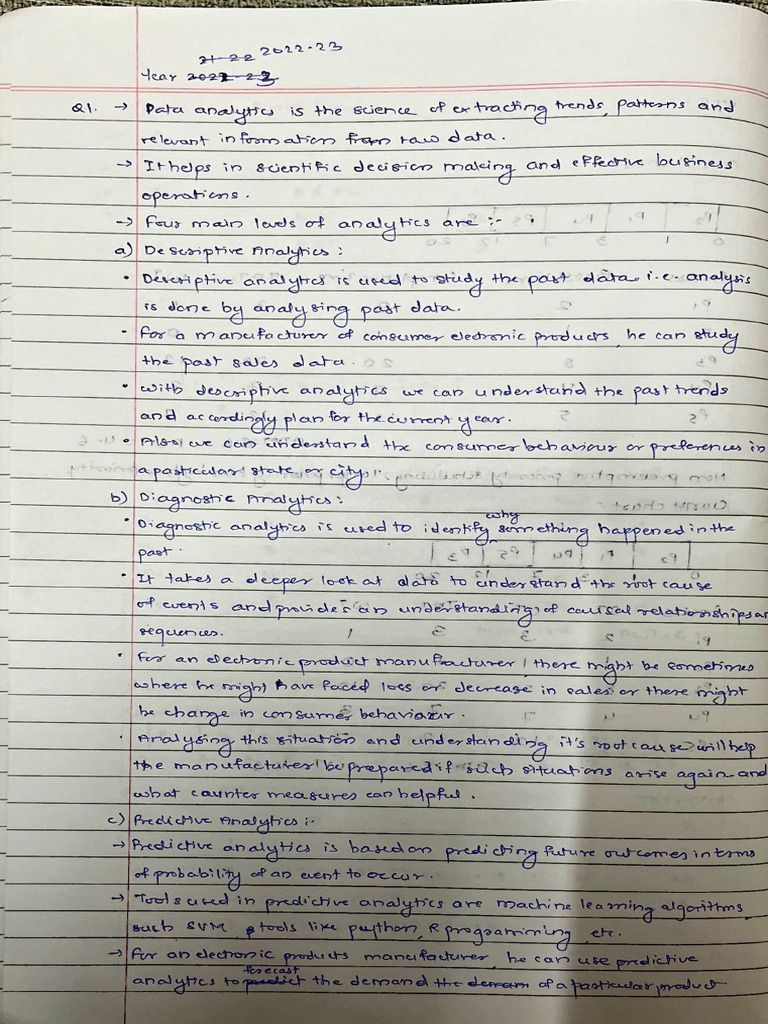 21-22 2022-23
Year 2022-23
Q1. → Data analytics is the science of extracting trends, patterns and
relevant information from raw data.
→ It helps in scientific decision making and effective business
operations.
→ Four main levels of analytics are :-
a) Descriptive Analytics :
• Descriptive analytics is used to study the past data i.e. analysis
is done by analysing past data.
• For a manufacturer of consumer electronic products, he can study
the past sales data.
• With descriptive analytics we can understand the past trends
and accordingly plan for the current year.
• Also, we can understand the consumer behaviour or preferences in
a particular state or city.
b) Diagnostic Analytics :
• Diagnostic analytics is used to identify why something happened in the
past.
• It takes a deeper look at data to understand the root cause
of events and provides an understanding of causal relationships or
sequences.
• For an electronic product manufacturer, there might be sometimes
where he might have faced loss or decrease in sales or there might
be change in consumer behaviour.
• Analysing this situation and understanding it's root cause will help
the manufacturer be prepared if such situations arise again and
what counter measures can helpful.
c) Predictive Analytics :-
→ Predictive analytics is based on predicting future outcomes in terms
of probability of an event to occur.
→ Tools used in predictive analytics are machine learning algorithms
such SVM, tools like python, R programming, etc.
→ For an electronic products manufacturer, he can use predictive
analytics to predict forecast the demand the demam of a particular product